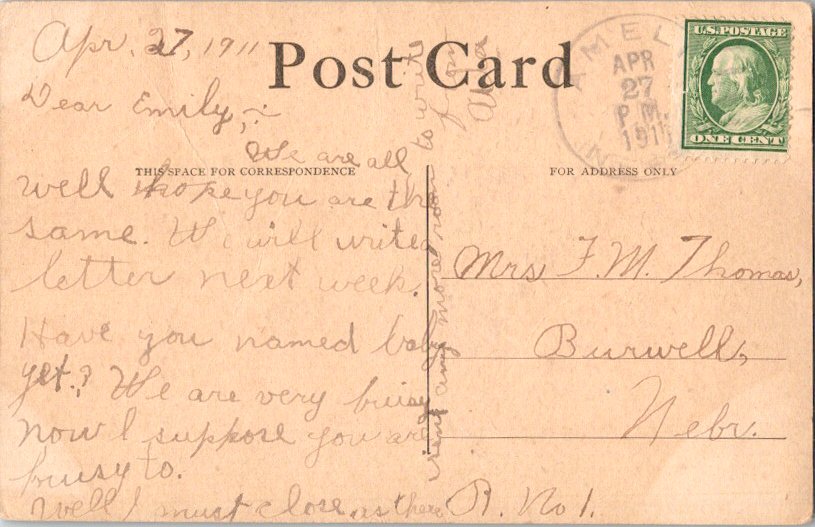 Apr. 27, 1911
Post Card
AMELIA
APR
27
P.M.
1911
NEBR
U.S. POSTAGE
ONE CENT
Dear Emily,:-
We are all
THIS SPACE FOR CORRESPONDENCE
well hope you are the
same. We will write a
letter next week.
Have you named baby
yet? We are very buisy
now I suppose you are
buisy to.
Well I must close as there
isent any more room to write
from
FOR ADDRESS ONLY
Mrs F. M. Thomas,
Burwell,
Nebr.
R. No 1.